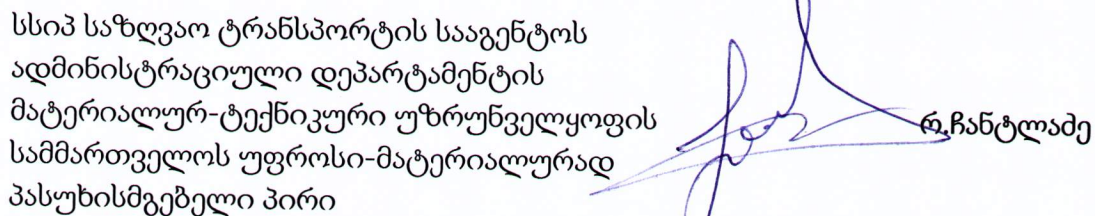 სსიპ საზღვაო ტრანსპორტის სააგენტოს
ადმინისტრაციული დეპარტამენტის
მატერიალურ-ტექნიკური უზრუნველყოფის
სამმართველოს უფროსი-მატერიალურად
პასუხისმგებელი პირი
რ.ჩანტლაძე